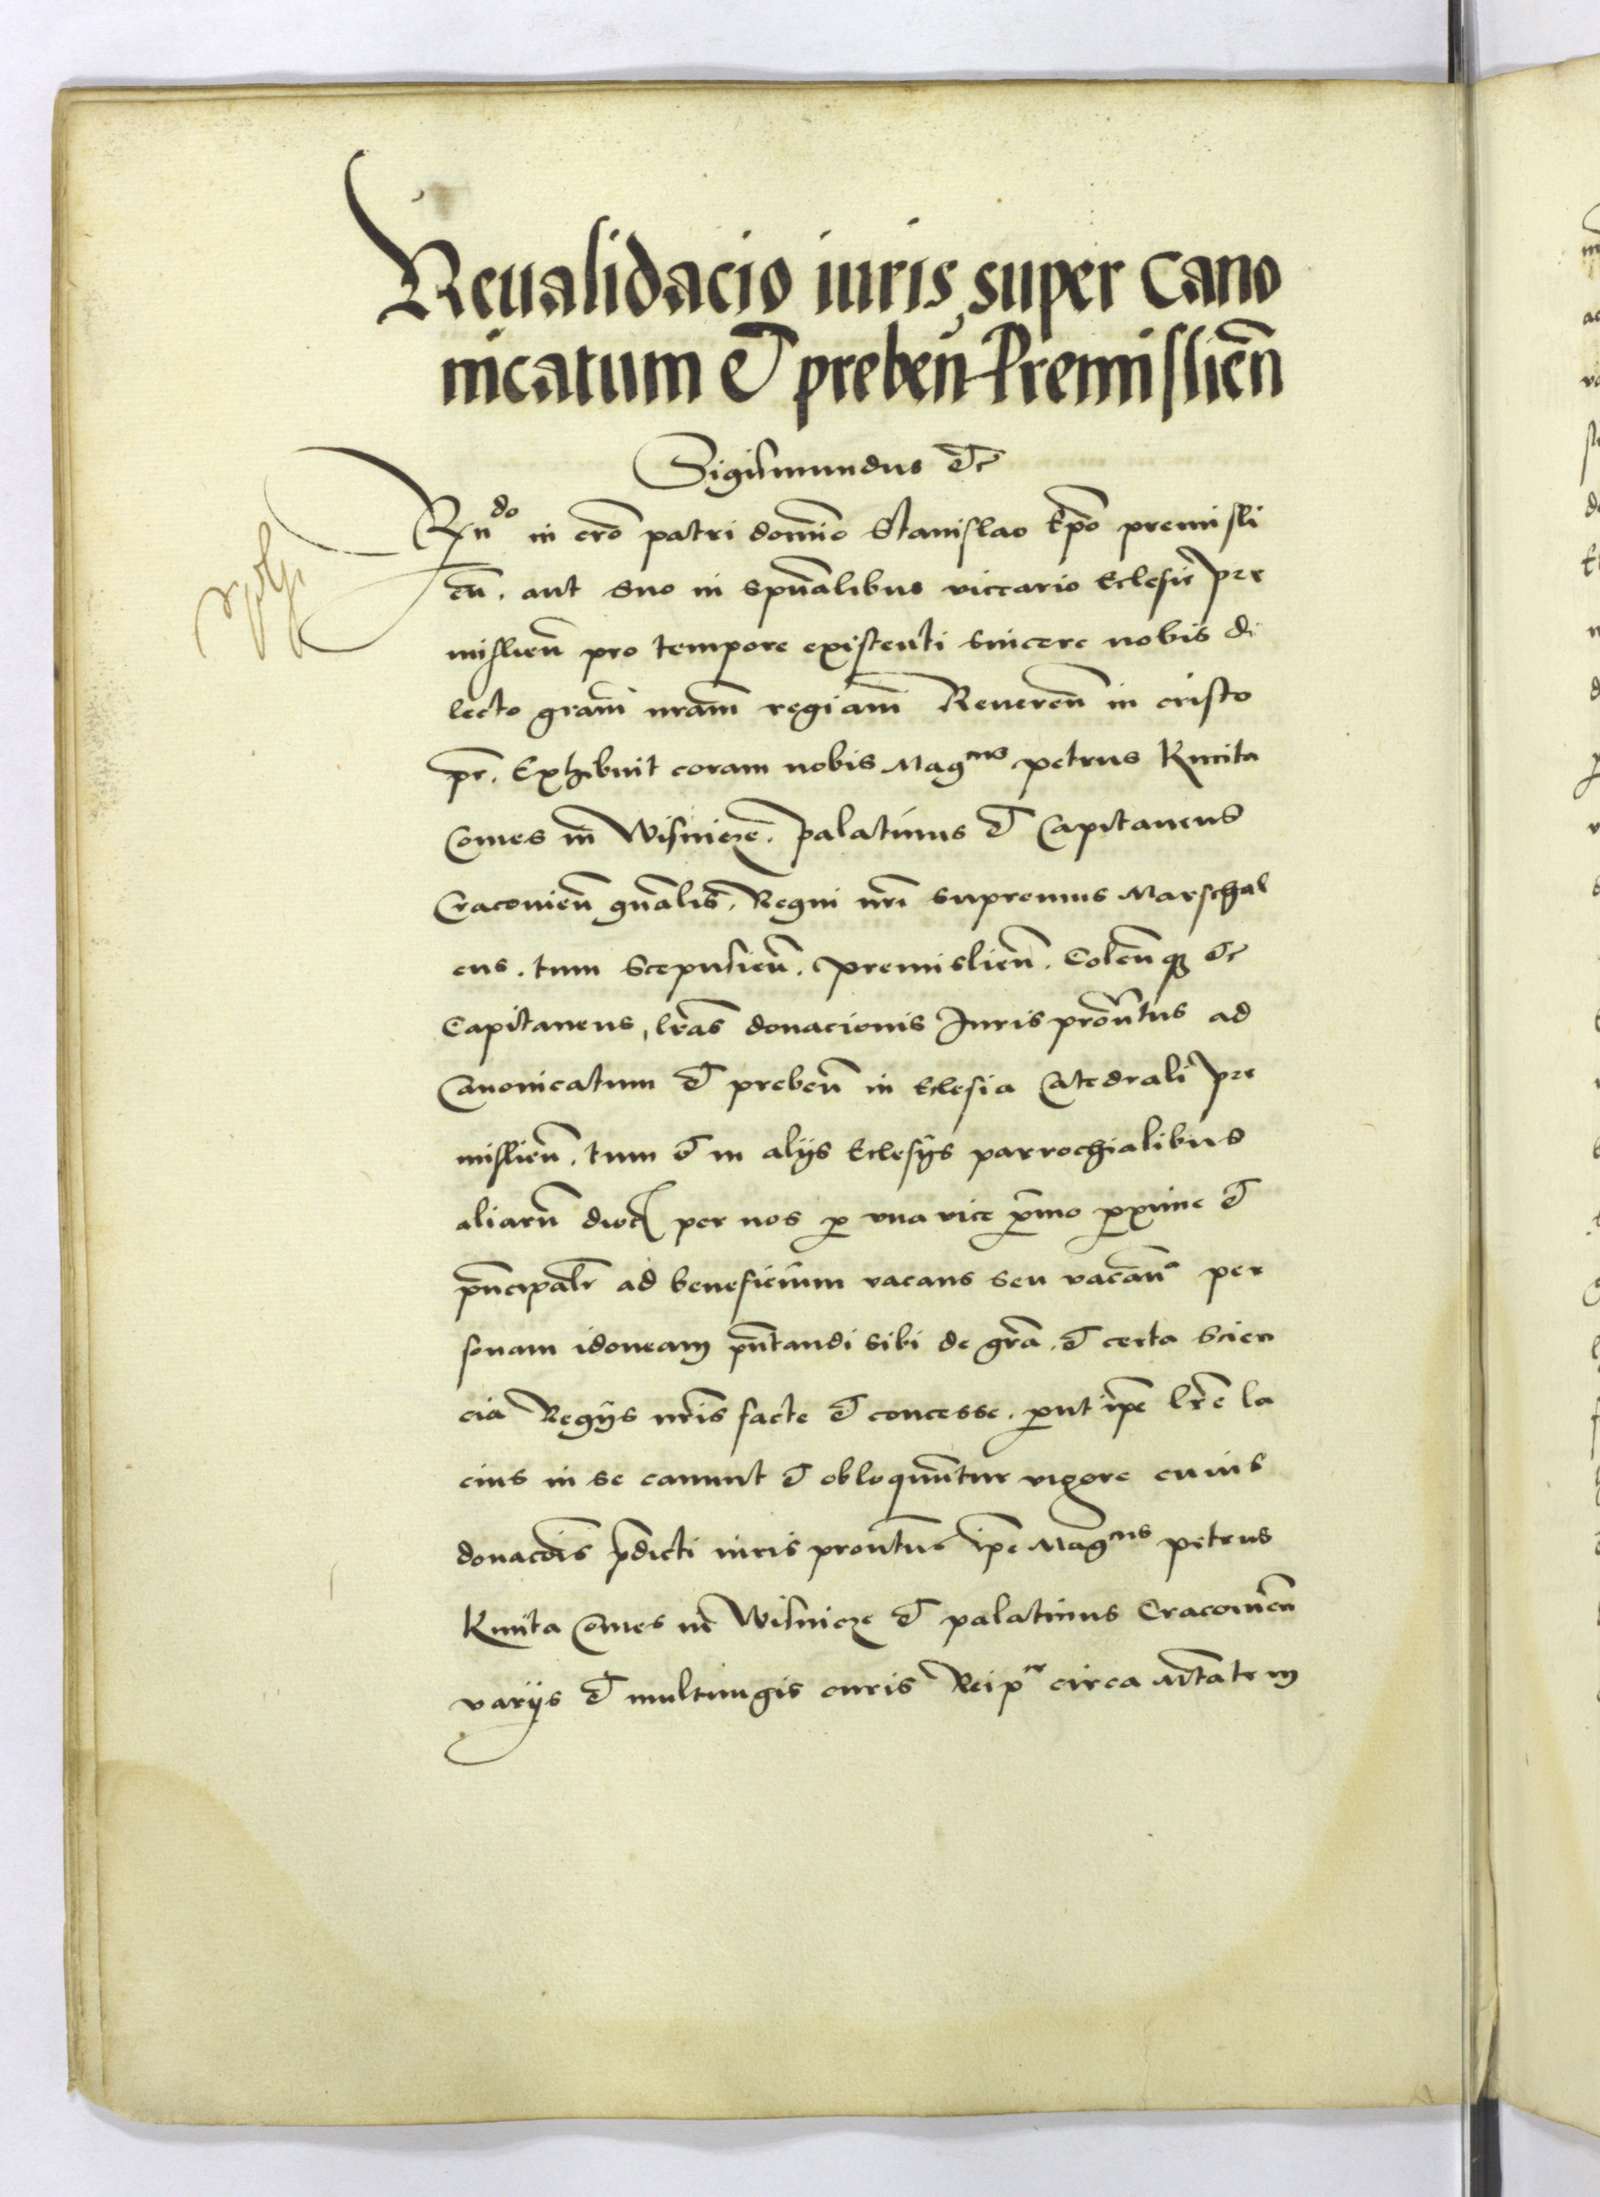 Reualidacio iuris super cano
nicatum et preben Premislien
Sigismundus etc
Rndo in cro patri domino Stanislao Epo premisli
en. aut suo in spualibus viccario Eclesie pre
mislien pro tempore existenti sincere nobis di
lecto gram nram regiam Reueren in cristo
pr. Exhibuit coram nobis Magcus petrus Kmita
Comes in Wisnicze. palatinus et Capitaneus
Cracouien gnalis. Regni nri supremus Marschal
cus. tum Scepusien. premislien. Colen q etc
Capitaneus, lras donacionis Juris prontus ad
Canonicatum et preben in Eclesia Catedrali pre
mislien. tum et in alijs Eclesijs parrochialibus
aliarum dioc per nos p vna vice pmo pxime et
pncipalr ad beneficium vacans seu vacan per
sonam idoneam pntandi sibi de gra. et certa scien
cia Regijs nris facte et concesse. put ipe lre la
cius in se canunt et obloquuntur vigore cuius
donacois pdicti iuris prontus ipe Magcus petrus
Kmita Comes in Wisnicze et palatinus Cracouien
varijs et multiiugis curis Reip circa Mtatem